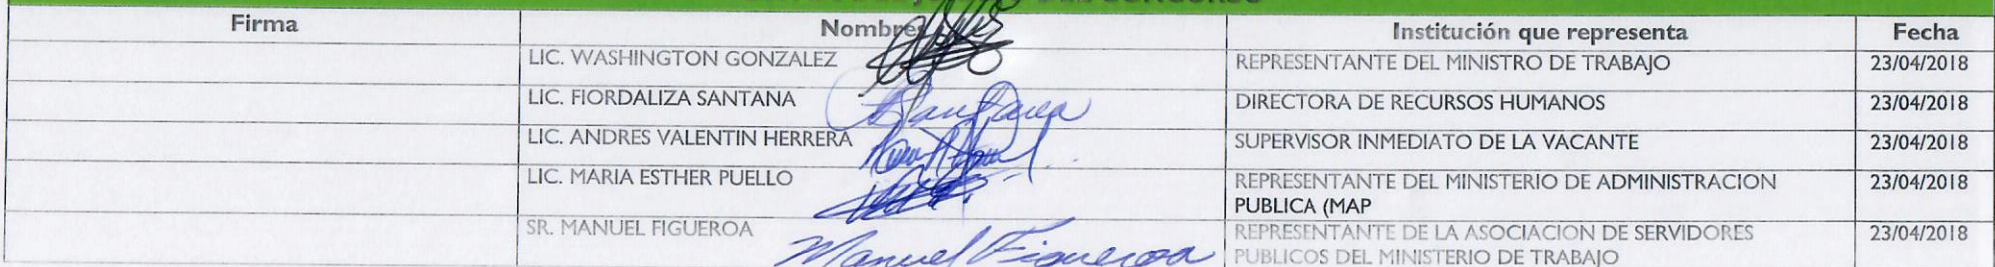 CONCURSO
Firma Nombres Institución que representa Fecha
LIC. WASHINGTON GONZALEZ REPRESENTANTE DEL MINISTRO DE TRABAJO 23/04/2018
LIC. FIORDALIZA SANTANA DIRECTORA DE RECURSOS HUMANOS 23/04/2018
LIC. ANDRES VALENTIN HERRERA SUPERVISOR INMEDIATO DE LA VACANTE 23/04/2018
LIC. MARIA ESTHER PUELLO REPRESENTANTE DEL MINISTERIO DE ADMINISTRACION 23/04/2018
PUBLICA (MAP
SR. MANUEL FIGUEROA REPRESENTANTE DE LA ASOCIACION DE SERVIDORES 23/04/2018
Manuel Figueroa PUBLICOS DEL MINISTERIO DE TRABAJO